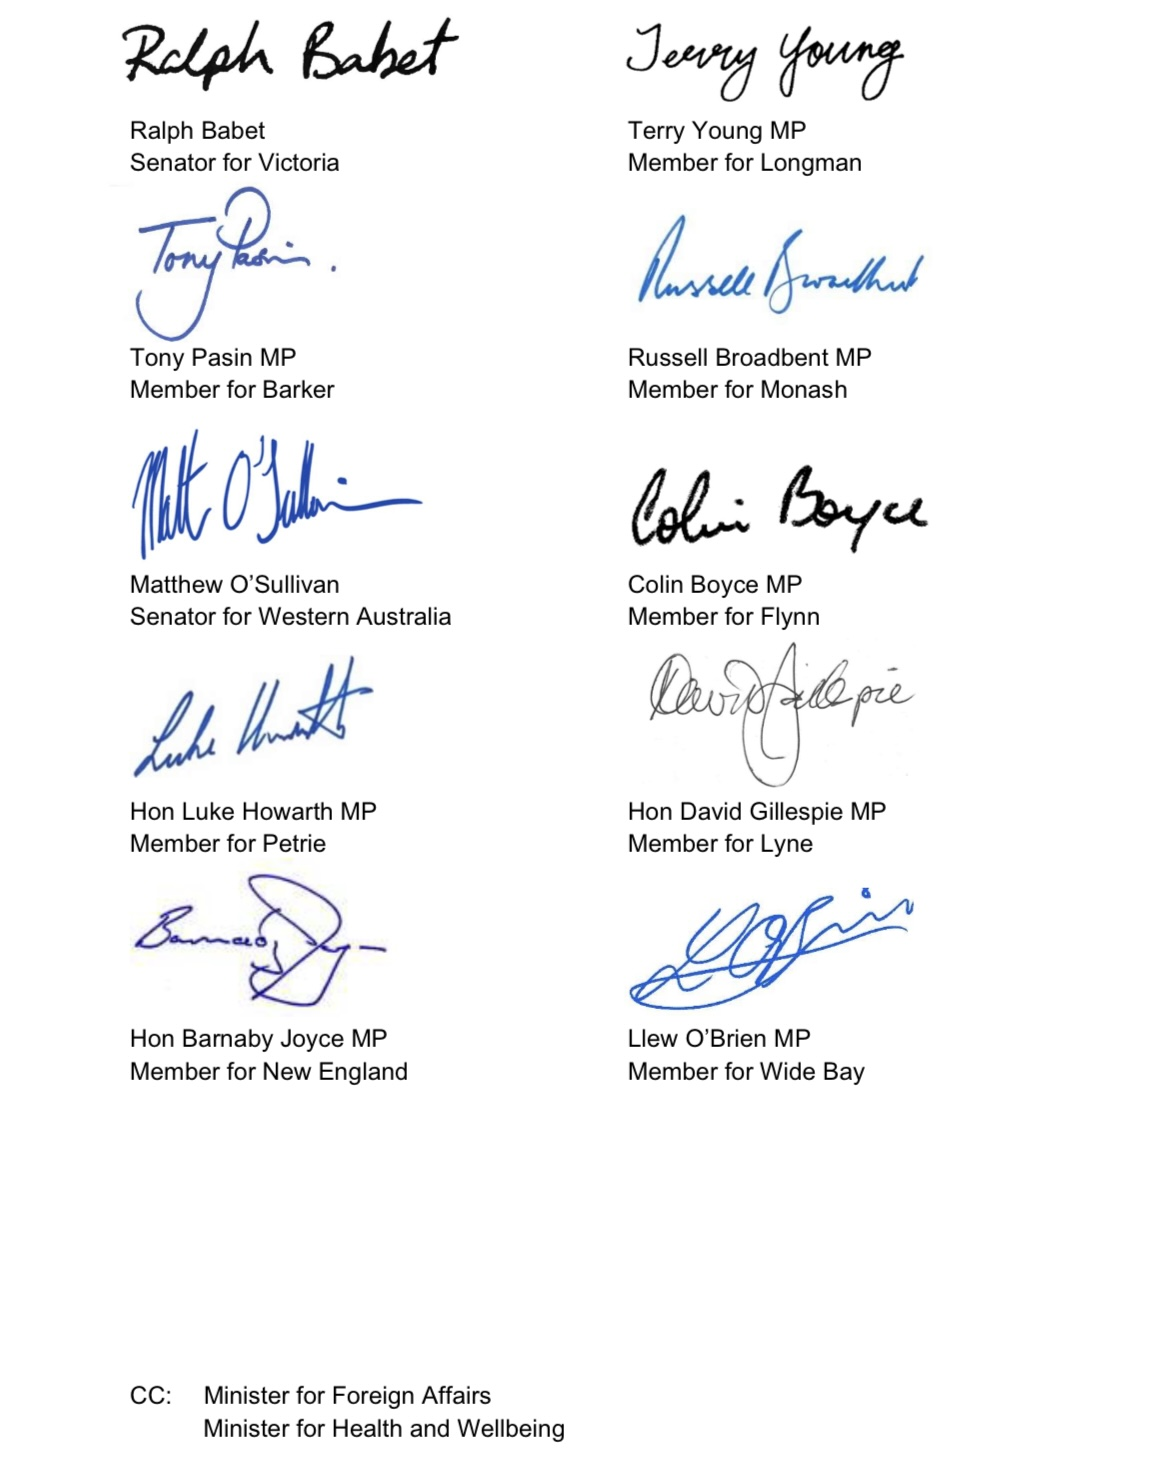 Ralph Babet
Terry Young
Ralph Babet
Senator for Victoria
Terry Young MP
Member for Longman
Tony Pasin
Russell Broadbent
Tony Pasin MP
Member for Barker
Russell Broadbent MP
Member for Monash
Matt O'Sullivan
Colin Boyce
Matthew O’Sullivan
Senator for Western Australia
Colin Boyce MP
Member for Flynn
Luke Howarth
David Gillespie
Hon Luke Howarth MP
Member for Petrie
Hon David Gillespie MP
Member for Lyne
Barnaby Joyce
L O'Brien
Hon Barnaby Joyce MP
Member for New England
Llew O’Brien MP
Member for Wide Bay
CC: Minister for Foreign Affairs
Minister for Health and Wellbeing